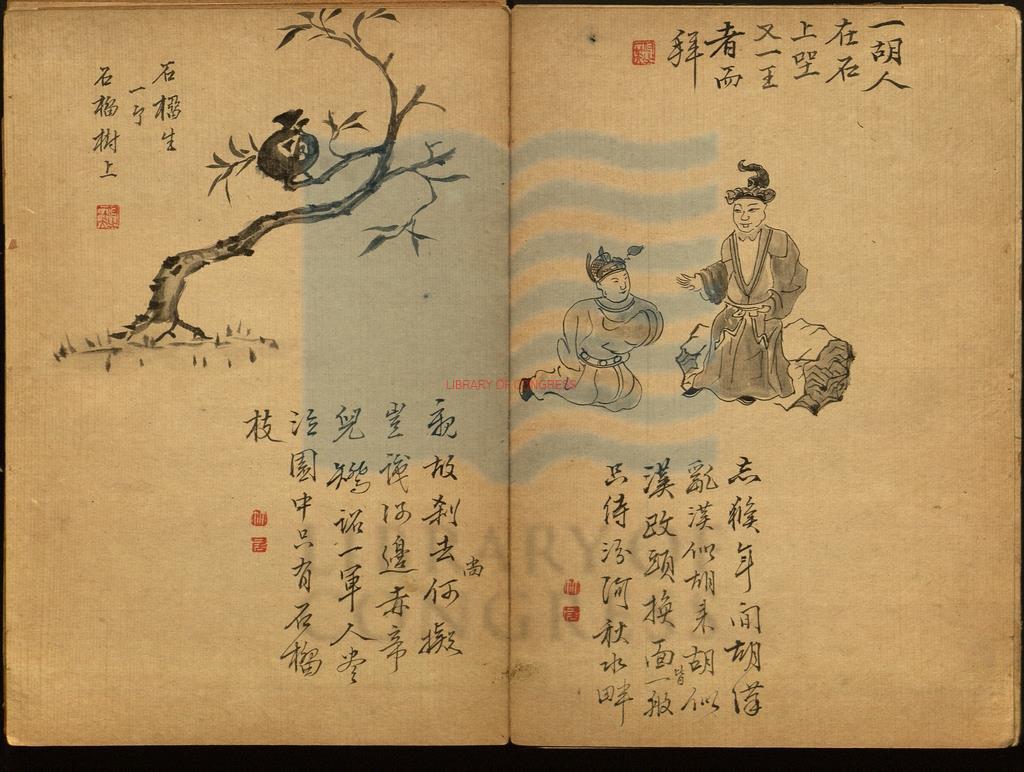 一胡人
在石
上坚
又一王
者而
拜
志猴年间胡僕
亂漢似胡来胡似
漢改頭換面一般
皆
只待汾河秋水畔
石榴生
一
石榴樹上
親故刹去何擬
尚
豈識河邊赤帝
兒
詔一軍人尽
園中只有石榴
枝
LIBRARY OF CONGRESS
LIBRARY OF
CONGRESS